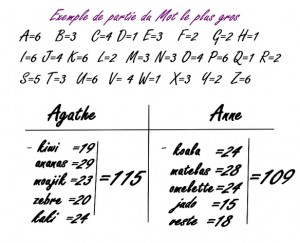 Exemple de partie du Mot le plus gros
A=6 B=3 C=4 D=1 E=3 F=2 G=2 H=1
I=6 J=4 K=6 L=2 M=3 N=3 O=4 P=6 Q=1 R=2
S=5 T=3 U=6 V=4 W=1 X=3 Y=2 Z=6
Agathe
- kiwi =19
ananas =29
moujik =23
zebre =20
kaki =24
=115
Anne
- koala =24
matelas =28
omelette =24
judo =15
reste =18
=109